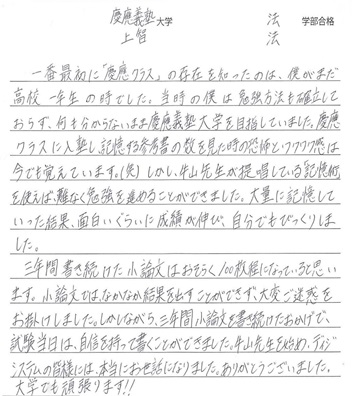 慶應義塾大学 法 学部合格
上智 法
一番最初に「慶應クラス」の存在を知ったのは、僕がまだ
高校一年生の時でした。当時の僕は勉強方法も確立して
おらず、何も分からないまま慶應義塾大学を目指していました。慶應
クラスに入塾し、記憶する参考書の数を見た時の恐怖とワクワク感は
今でも覚えています。(笑)しかし、牛山先生が提唱している記憶術
を使えば、難なく勉強を進めることができました。大量に記憶して
いった結果、面白いぐらいに成績が伸び、自分でもびっくりしま
した。
三年間書き続けた小論文はおそらく100枚程になっていると思い
ます。小論文ではなかなか結果を出すことができず、大変ご迷惑を
お掛けしました。しかしながら、三年間小論文を書き続けたおかげで、
試験当日は、自信を持って書くことができました。牛山先生を始め、ディジ
システムの皆様には、本当にお世話になりました。ありがとうございました。
大学でも頑張ります!!